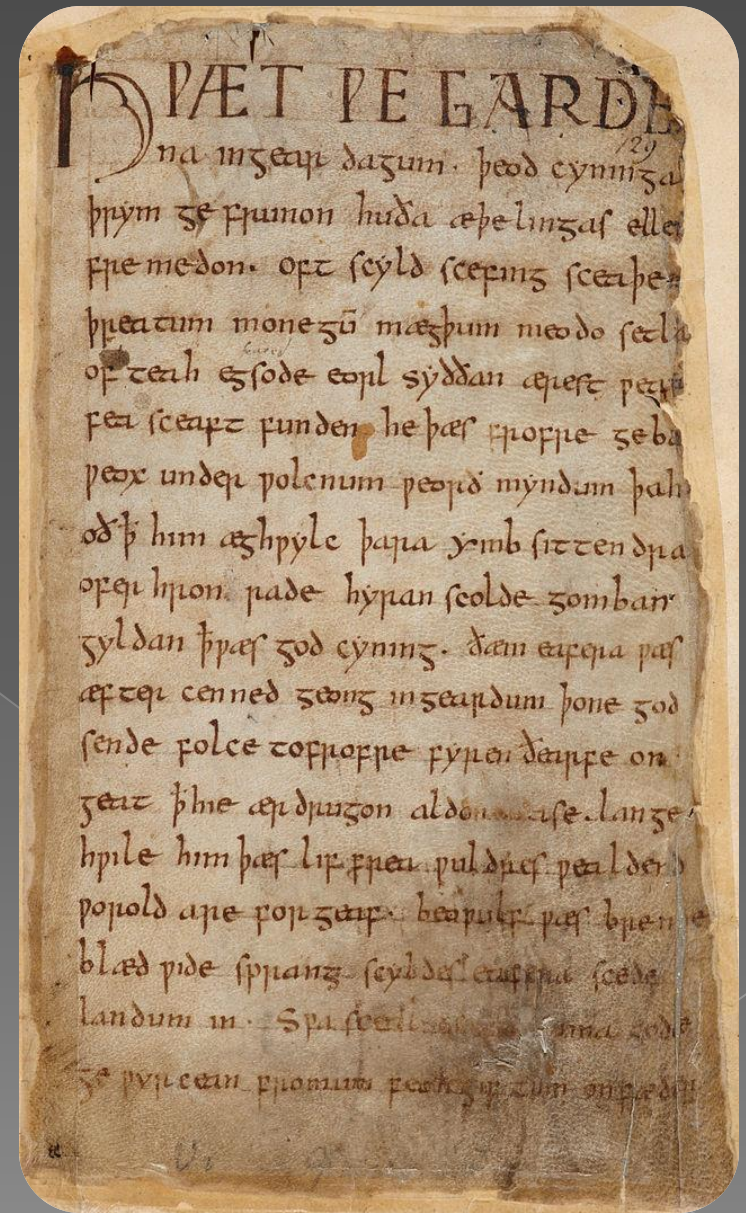 HǷÆT ǷE GARDE
na ingear dagum. þeod cyninga
þrym ge frunon huða æþelingas elle
fremedon. oft scyld scefing sceaþe
þreatum monegū mægþum meodo setla
of teah egsode eorl syððan ærest ƿear
fea sceaft funden he þæs frofre geba
ƿeox under ƿolcnum ƿeorð myndum þah
oð ꝥ him æghƿylc þara ymb sittendra
ofer hron rade hyran scolde gomban
gyldan ꝥ ƿæs god cyning. ðæm eafera ƿæs
æfter cenned geong in geardum þone god
sende folce tofrofre fyren ðearfe on
geat ꝥ hie ær drugon aldor ase. lange
hƿile him þæs lif frea ƿuldres ƿealdend
ƿorold are forgeaf. beoƿulf ƿæs breme
blæd ƿide sprang scyldes eafera scede
landum in. Sƿa sceal uma gode
ge ƿyrcean fromum feohgiftum on fæder
129